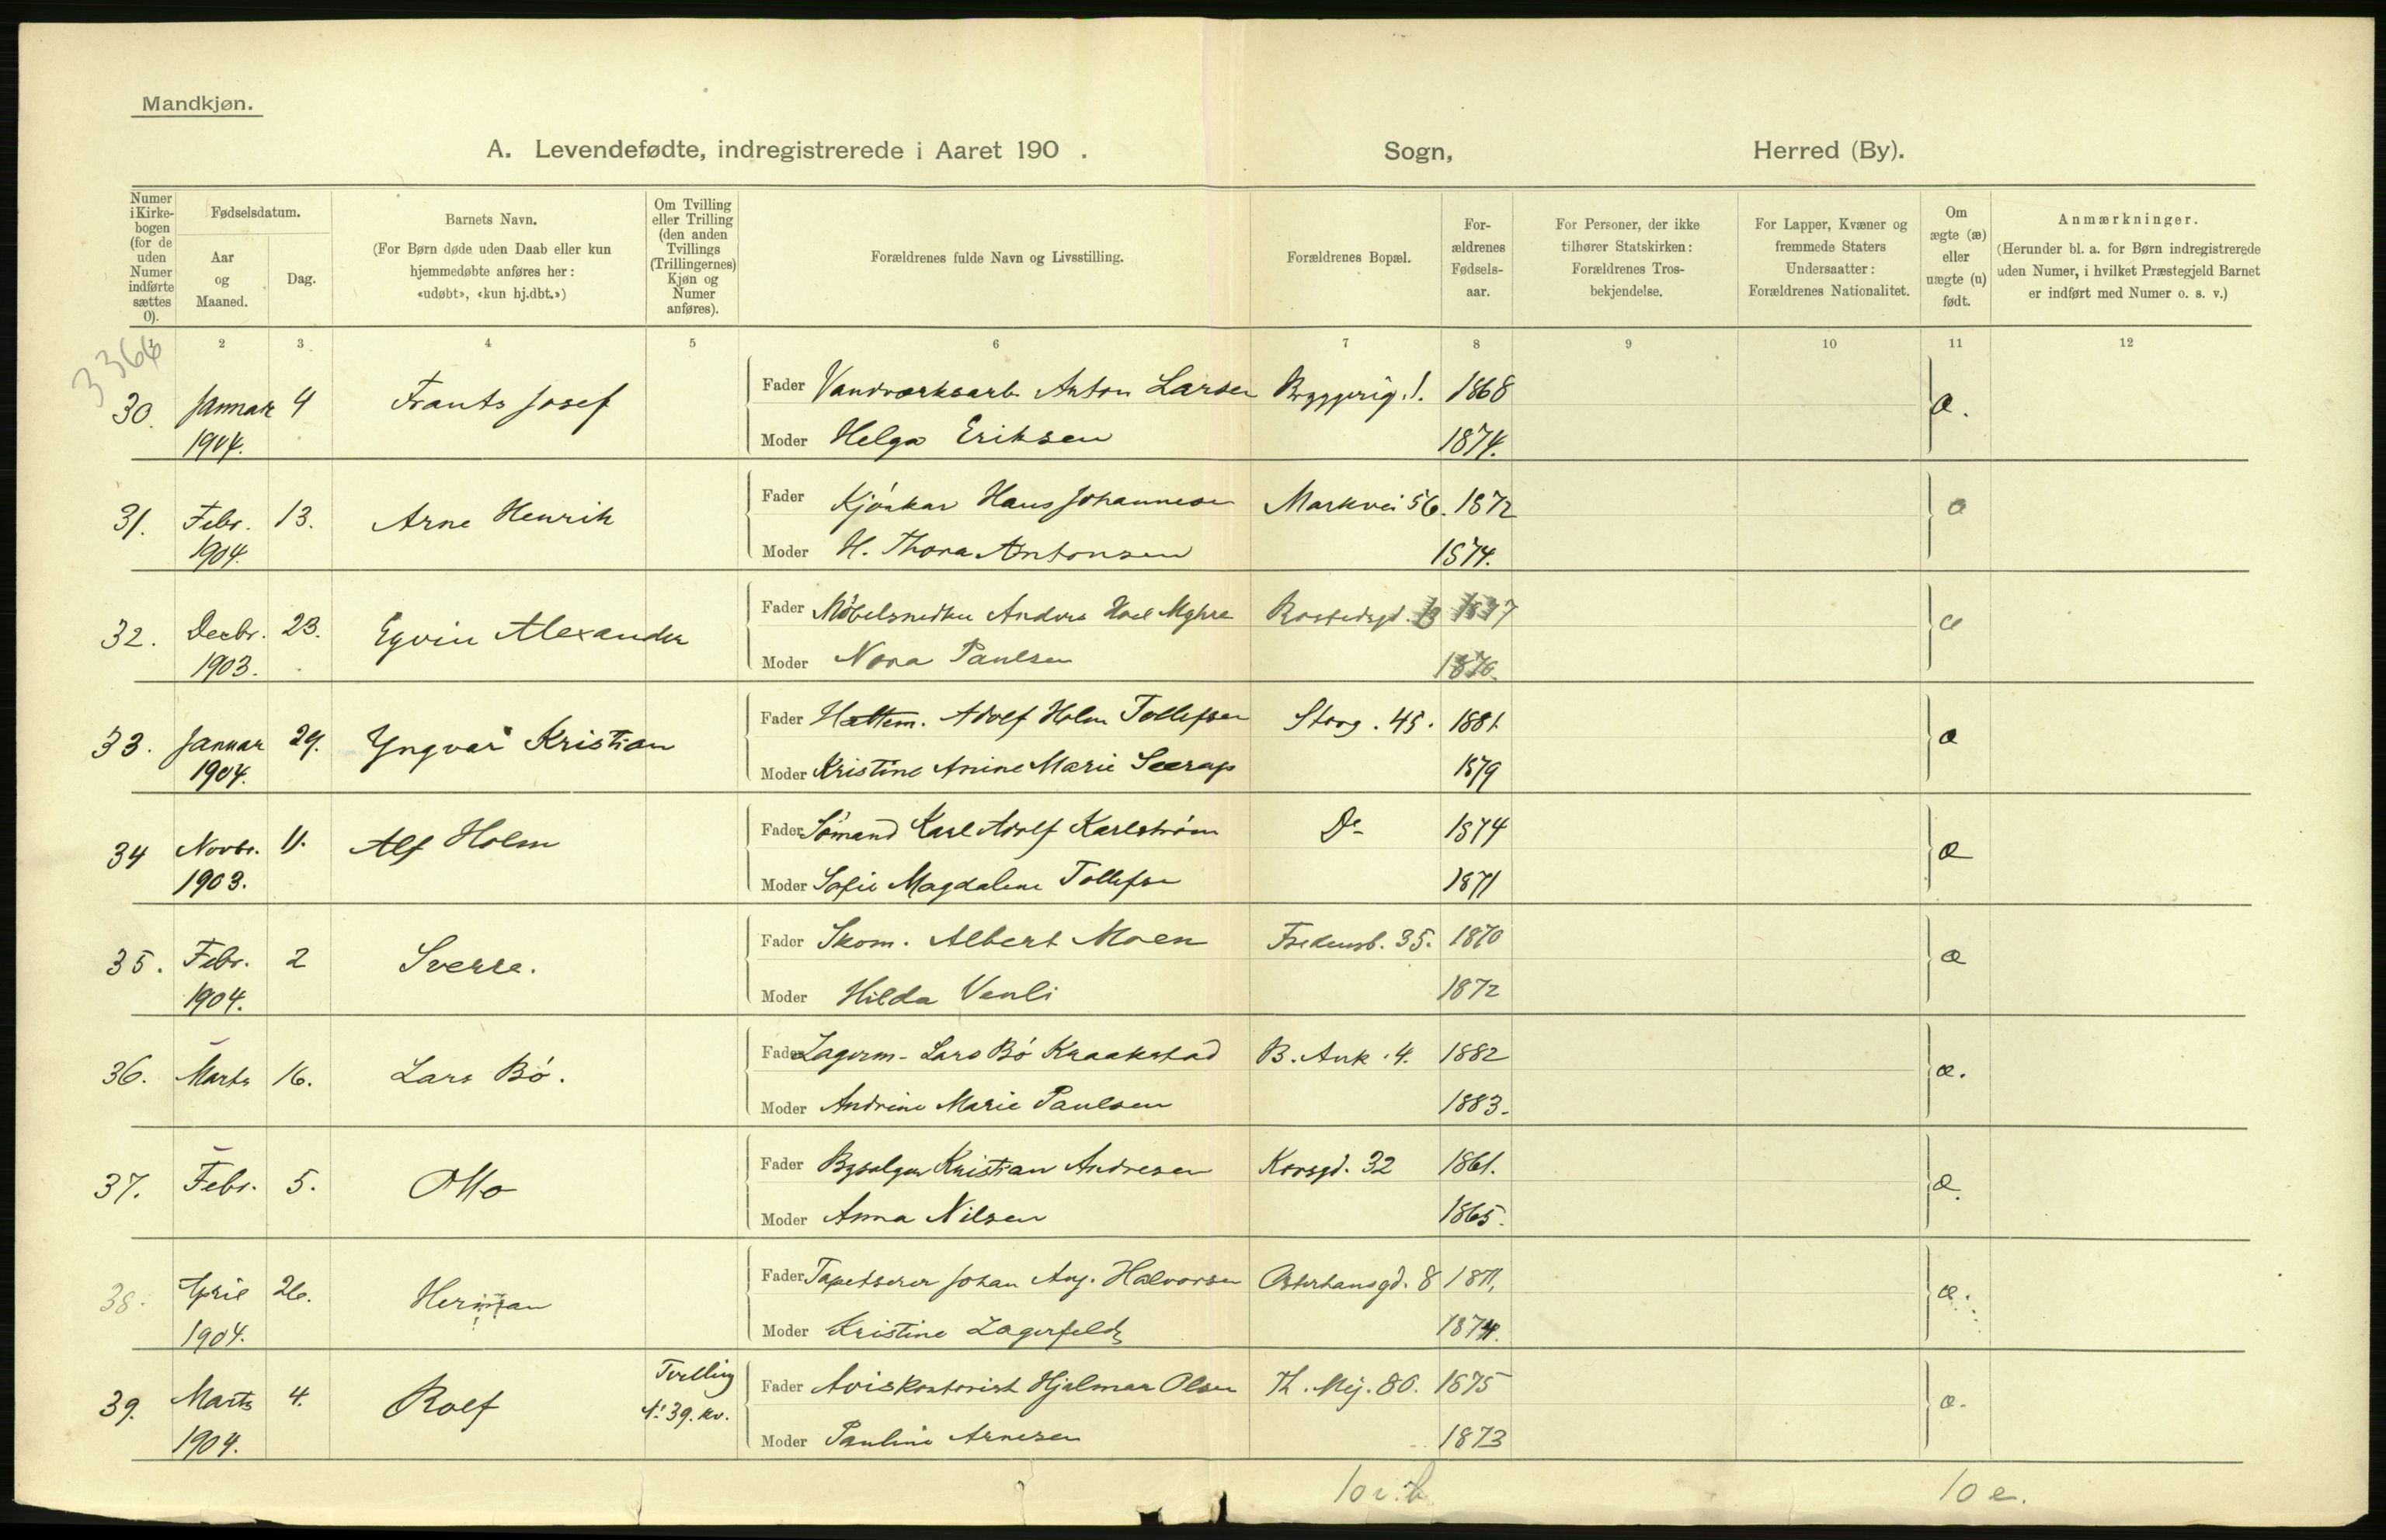 Mandkjøn.
A. Levendefødte, indregistrerede i Aaret 190 . Sogn, Herred (By).
Numer i Kirke-bogen (for de uden Numer indførte sættes 0).
Fødselsdatum.
Aar og Maaned.
Dag.
Barnets Navn.
(For Børn døde uden Daab eller kun hjemmedøbte anføres her: «udøbt», «kun hj.dbt.»)
Om Tvilling eller Trilling (den anden Tvillings (Trillingernes) Kjøn og Numer anføres).
Forældrenes fulde Navn og Livsstilling.
Forældrenes Bopæl.
For-ældrenes Fødsels-aar.
For Personer, der ikke tilhører Statskirken: Forældrenes Tros-bekjendelse.
For Lapper, Kvæner og fremmede Staters Undersaatter: Forældrenes Nationalitet.
Om ægte (æ) eller uægte (u) født.
Anmærkninger.
(Herunder bl. a. for Børn indregistrerede uden Numer, i hvilket Præstegjeld Barnet er indført med Numer o. s. v.)
1 2 3 4 5 6 7 8 9 10 11 12
3364
30. Januar 4 Frants Josef Fader Vandværksarb. Anton Larsen Bryggerig. 1. 1868 æ.
1904. Moder Helga Eriksen 1874.
31. Febr. 13. Arne Henrik Fader Kjørekar Hans Johannesen Markvei 56. 1872 æ
1904. Moder H. Thora Antonsen 1874.
32. Decbr. 23. Eyvin Alexander Fader Møbelsnedker Anders Hoel Myhre Rostedsgd. æ
1903. Moder Nora Paulsen
33. Januar 29. Yngvar Kristian Fader Hattem. Adolf Holm Tollefsen Storg. 45. 1881. æ
1904. Moder Kristine Anine Marie 1879
34 Novbr. 11. Alf Holm Fader Sømand Karl Adolf Karlstrøm Do 1874 æ
1903. Moder Sofie Magdalene Tollefsen 1871
35. Febr. 2 Sverre. Fader Skom. Albert Moen Fredensb. 35. 1870 æ
1904. Moder Hilda Venli 1872
36. Marts 16. Lars Bö. Fader Lagerm. Lars Bö Kraakstad B. Ank. 4. 1882 æ.
Moder Andrine Marie Paulsen 1883.
37. Febr. 5. Otto Fader Bysælger Kristian Andresen Korsgd. 32 1861. æ.
Moder Anna Nilsen 1865.
38. April 26. Herman Fader Tapetserer Johan Aug. Halvorsen Osterhausgd. 8 1871. æ.
1904. Moder Kristine Lagerfeldt 1874.
39. Marts 4. Rolf Tvilling Fader Aviskontorist Hjalmar Olsen Th. Mej. 80. 1875 æ.
No 39. kv.
1904. Moder Pauline Arnesen 1873
10 e.